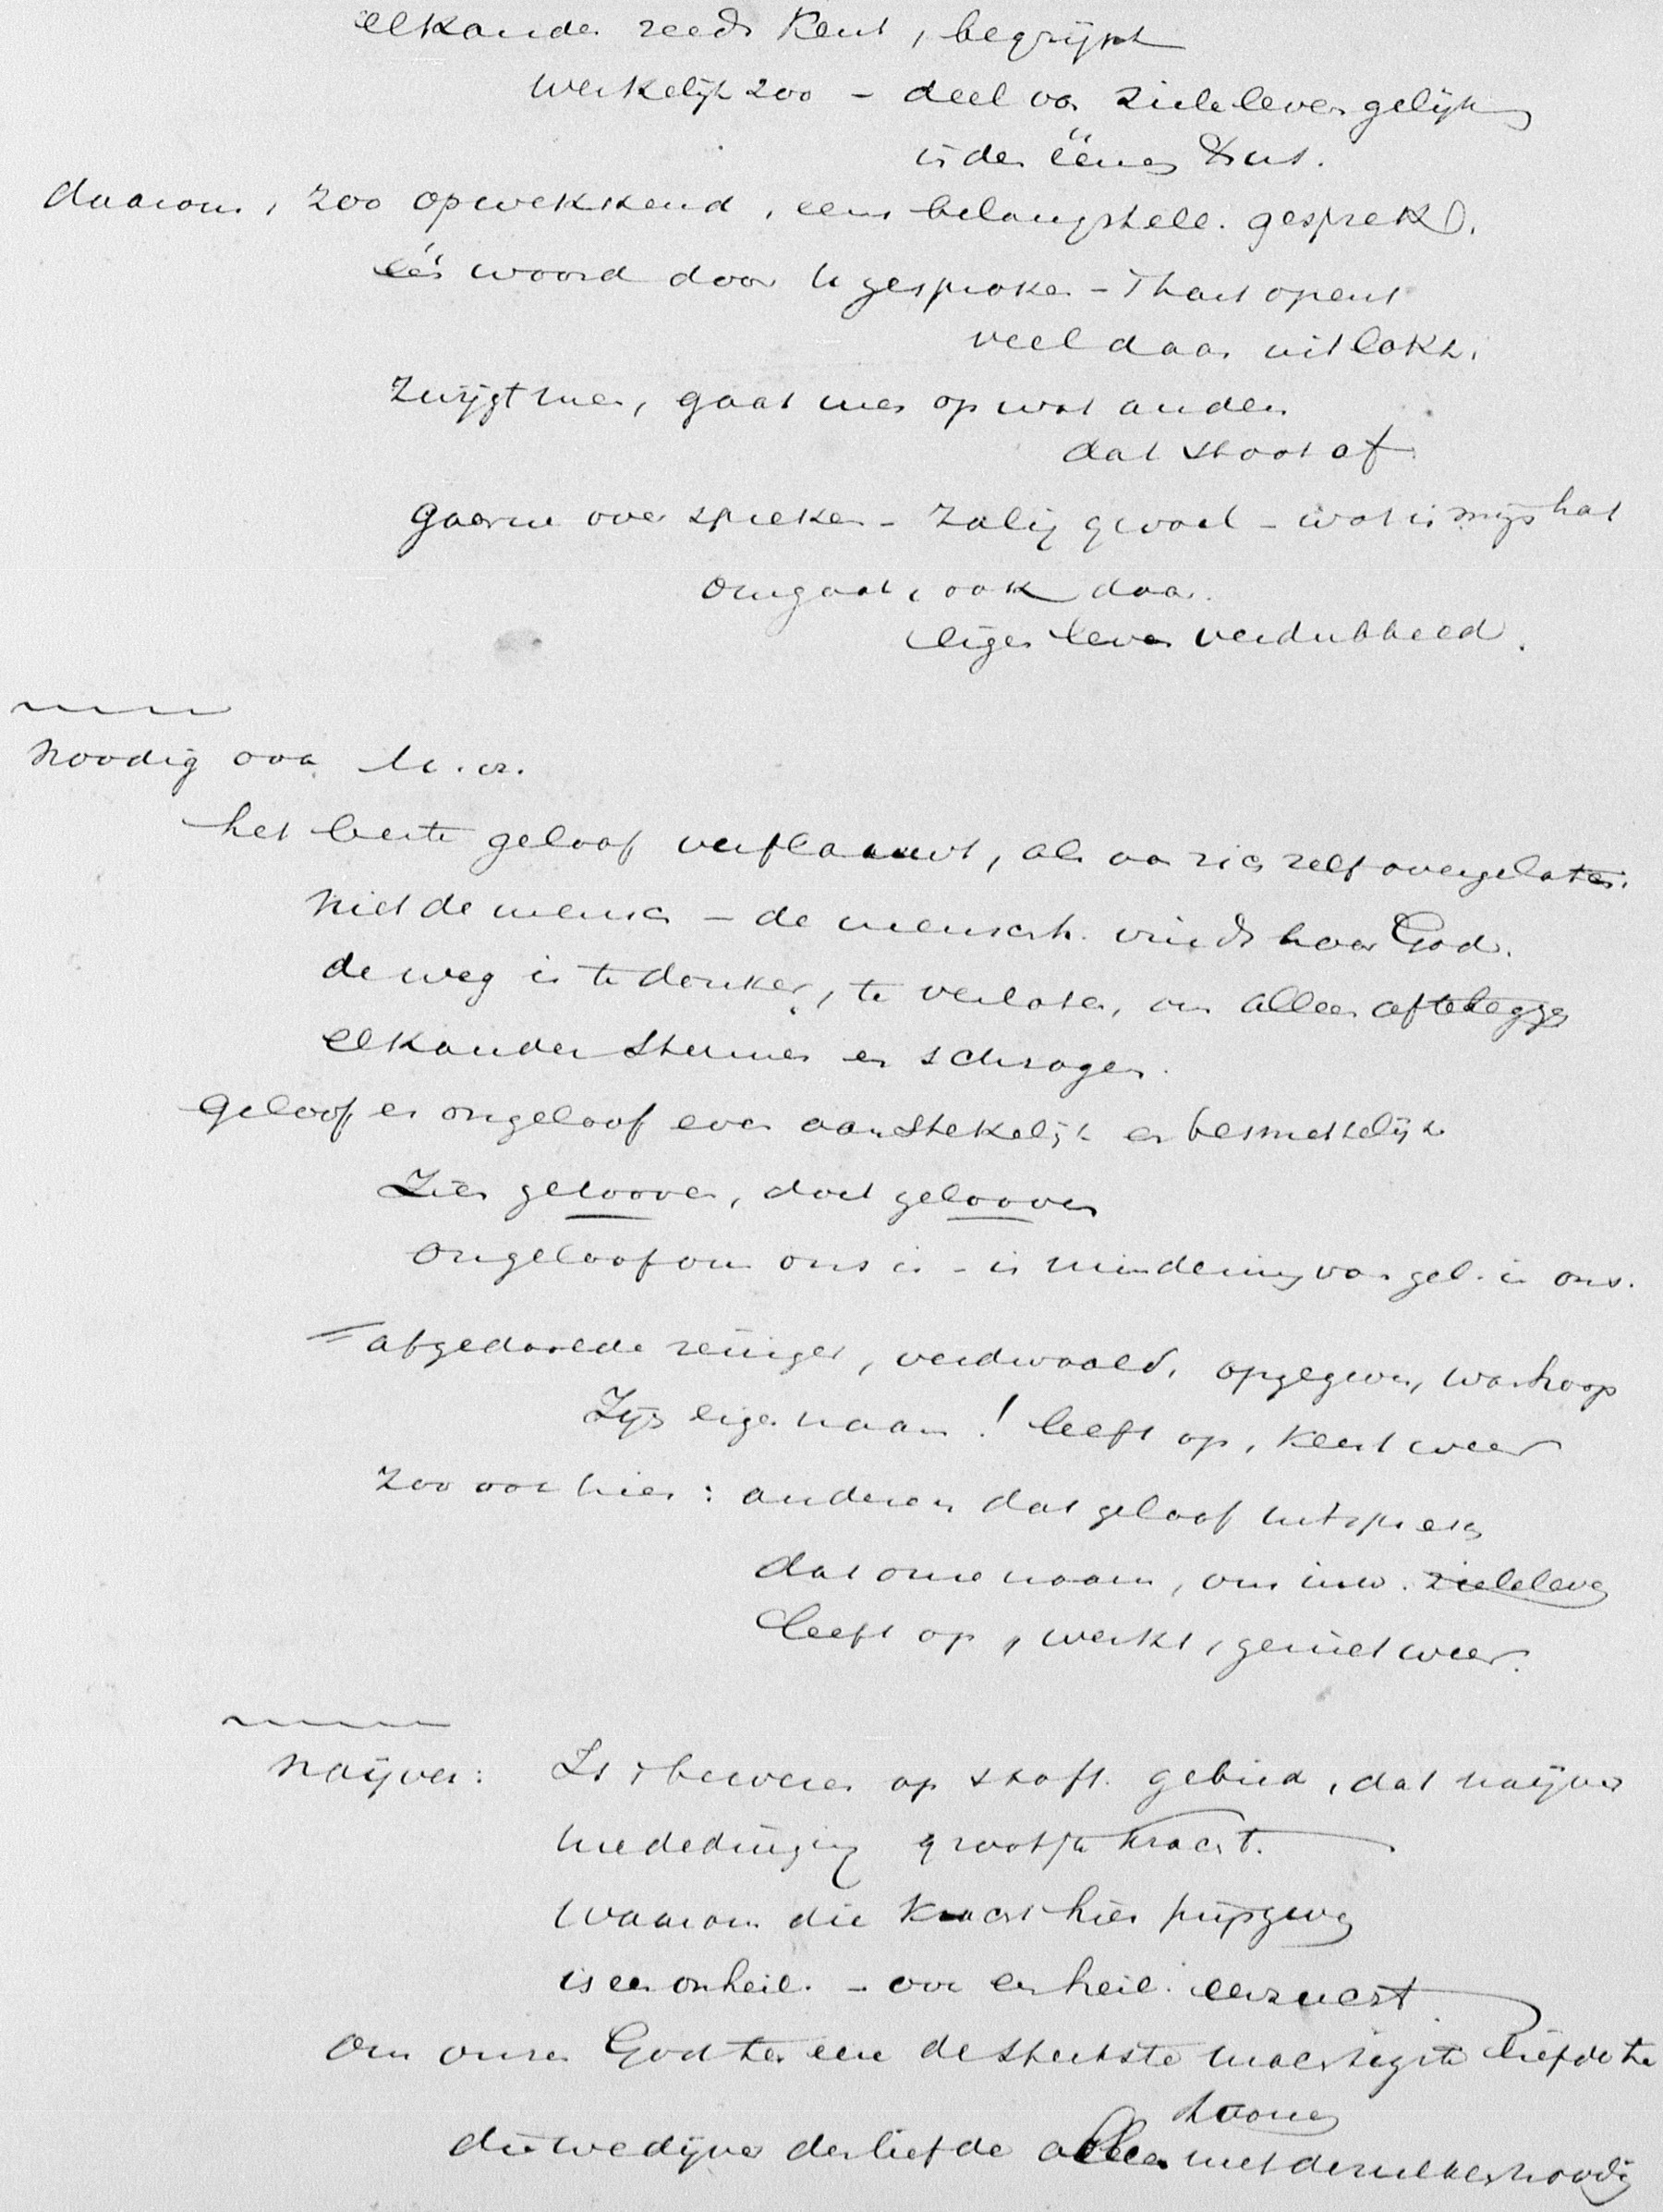 elkander reeds kent, begrijpt
werkelijk zoo - deel van zieleleven gelijk
in den éénen
daarom, zoo opwekkend, een belangstell. gesprek.
één woord door U gesproken - 't hart opent
veel daar uitlokt.
zwijgt men, gaat men op wat anders
dat stoot af
gaarne over spreken - zalig gevoel - wat in mijn hart
omgaat, ook daar.
eigen leven verdubbeld.
noodig
het beste geloof verflauwt, als aan zich zelf overgelaten.
niet de mensch - de mensch. vindt haar God.
de weg is te donker, te verlaten, om alleen afteleggen
elkander steunen en schragen.
geloof en ongeloof even aanstekelijk en besmettelijk
Zien gelooven, doet gelooven
ongeloof om ons is - is mindering van gel. in ons.
= afgedwaalde reiziger, verdwaald, opgegeven, wanhoop
Zijn eigen naam! leeft op, keert weer
zoo ook hier: anderen dat geloof uitspreken
dat onze naam, ons inw. zieleleven
leeft op, werkt, geniet weer.
naijver: Is 't bewezen op stoff. gebied, dat naijver
mededinging grootste kracht.
Waarom die kracht hier prijsgeven
is er onheil. - ook er heil. eerzucht
om onzen God ter eere de sterkste machtigste liefde te
toonen
die wedijver der liefde alleen met der noodig